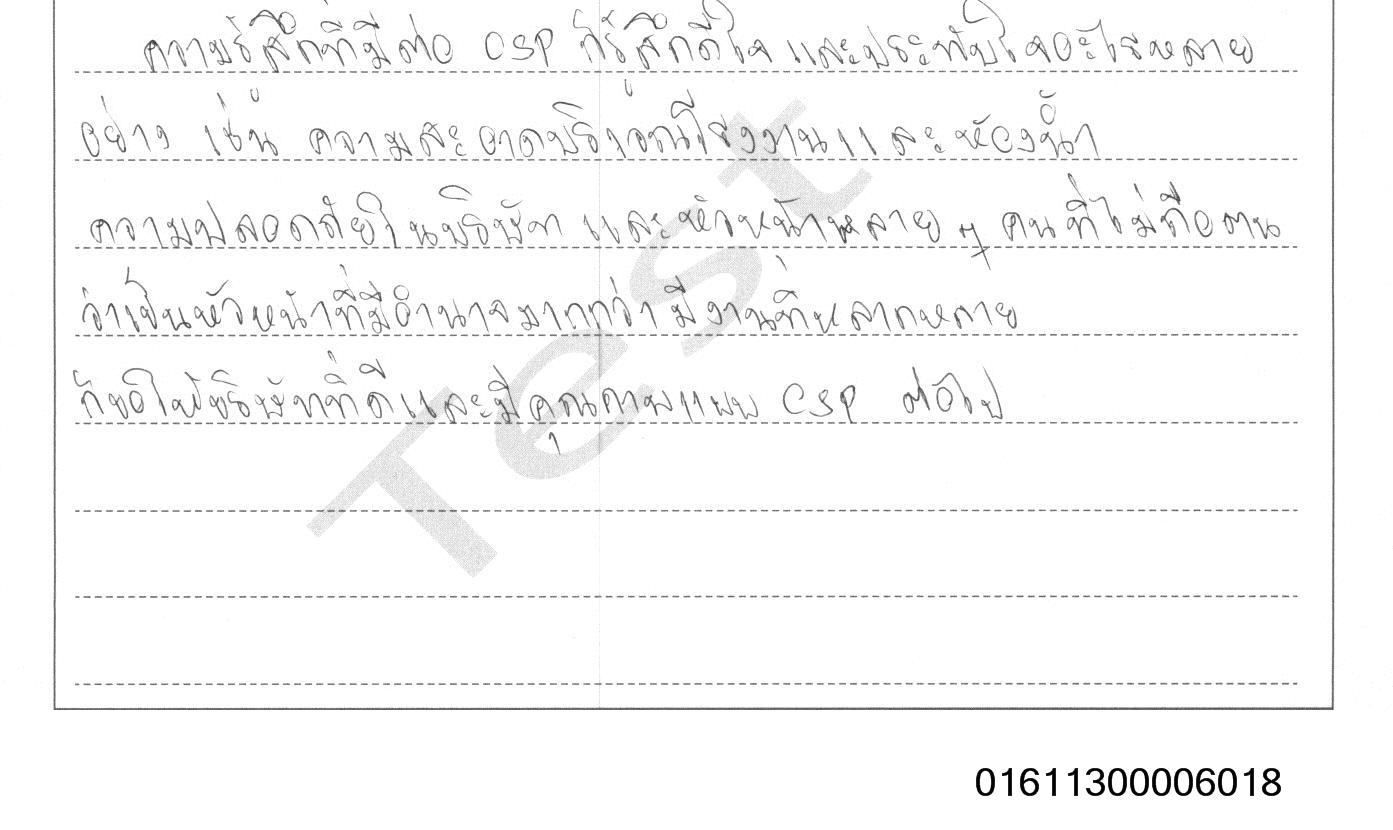 ความรู้สึกที่มีต่อ CSP ก็รู้สึกดีใจ และประทับใจอะไรหลาย
อย่าง เช่น ความสะอาดบริเวณโรงงานและห้องน้ำ
ความปลอดภัยในบริษัท และหัวหน้าหลาย ๆ คนที่ไม่ถือตน
ว่าเป็นหัวหน้าที่มีอำนาจมากกว่า มีงานที่หลากหลาย
ก็ขอให้บริษัทที่ดีและมีคุณภาพแบบ CSP ต่อไป
Test
01611300006018